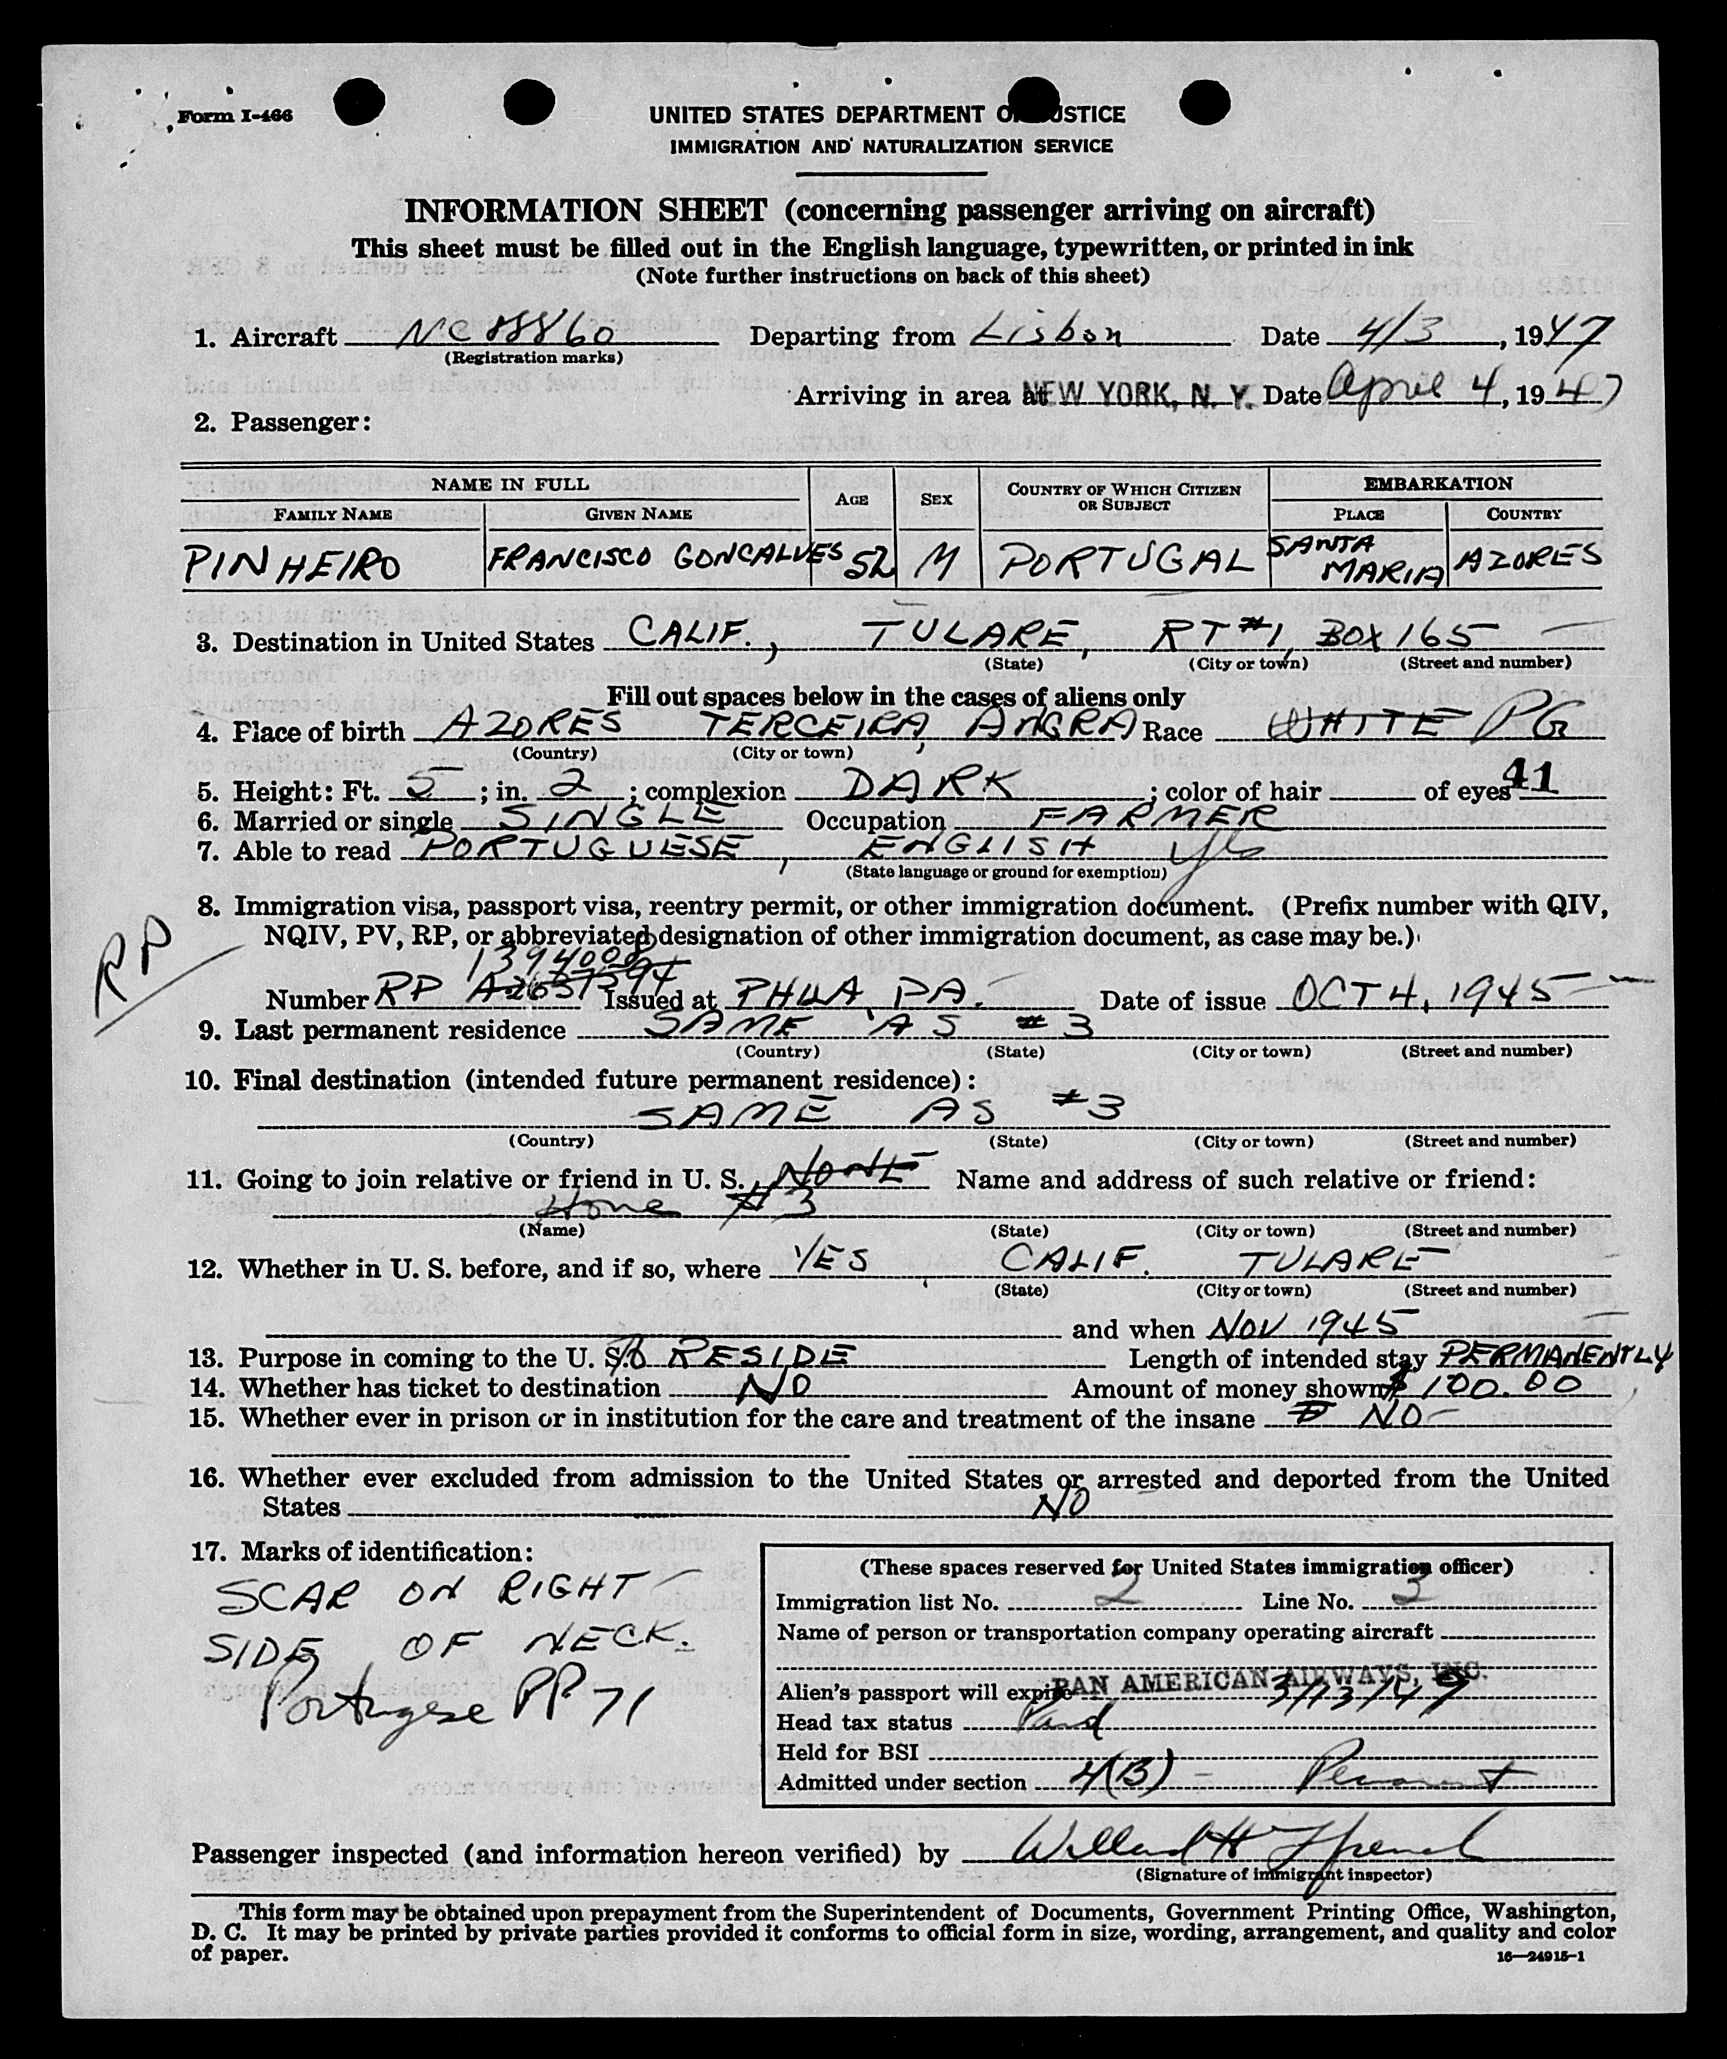 Form I-466
UNITED STATES DEPARTMENT OF JUSTICE
IMMIGRATION AND NATURALIZATION SERVICE
INFORMATION SHEET (concerning passenger arriving on aircraft)
This sheet must be filled out in the English language, typewritten, or printed in ink
(Note further instructions on back of this sheet)
1. Aircraft NC88860 Departing from Lisbon Date 4/3, 1947
(Registration marks)
Arriving in area at NEW YORK, N. Y. Date April 4, 1947
2. Passenger:
NAME IN FULL AGE SEX COUNTRY OF WHICH CITIZEN OR SUBJECT EMBARKATION
FAMILY NAME GIVEN NAME PLACE COUNTRY
PINHEIRO FRANCISCO GONCALVES 52 M PORTUGAL SANTA MARIA AZORES
3. Destination in United States CALIF., TULARE, RT #1, BOX 165
(State) (City or town) (Street and number)
Fill out spaces below in the cases of aliens only
4. Place of birth AZORES TERCEIRA, ANGRA Race WHITE PG
(Country) (City or town)
5. Height: Ft. 5; in. 2; complexion DARK; color of hair of eyes 41
6. Married or single SINGLE Occupation FARMER
7. Able to read PORTUGUESE, ENGLISH yes
(State language or ground for exemption)
8. Immigration visa, passport visa, reentry permit, or other immigration document. (Prefix number with QIV,
NQIV, PV, RP, or abbreviated designation of other immigration document, as case may be.)
RP
1394008
Number RP A2657594 Issued at PHILA PA. Date of issue OCT 4, 1945
9. Last permanent residence SAME AS #3
(Country) (State) (City or town) (Street and number)
10. Final destination (intended future permanent residence):
SAME AS #3
(Country) (State) (City or town) (Street and number)
11. Going to join relative or friend in U. S. NONE Name and address of such relative or friend:
Home #3
(Name) (State) (City or town) (Street and number)
12. Whether in U. S. before, and if so, where YES, CALIF. TULARE
(State) (City or town) (Street and number)
and when NOV 1945
13. Purpose in coming to the U. S. To RESIDE Length of intended stay PERMANENTLY
14. Whether has ticket to destination NO Amount of money shown $100.00
15. Whether ever in prison or in institution for the care and treatment of the insane NO
16. Whether ever excluded from admission to the United States or arrested and deported from the United
States NO
17. Marks of identification:
SCAR ON RIGHT
SIDE OF NECK.
Portugese PP. 71
(These spaces reserved for United States immigration officer)
Immigration list No. 2 Line No. 3
Name of person or transportation company operating aircraft
PAN AMERICAN AIRWAYS, INC.
Alien's passport will expire 3/13/49
Head tax status Paid
Held for BSI
Admitted under section 4(B) - Permanent
Passenger inspected (and information hereon verified) by Willard H
(Signature of immigrant inspector)
This form may be obtained upon prepayment from the Superintendent of Documents, Government Printing Office, Washington,
D. C. It may be printed by private parties provided it conforms to official form in size, wording, arrangement, and quality and color
of paper.
16—24915-1